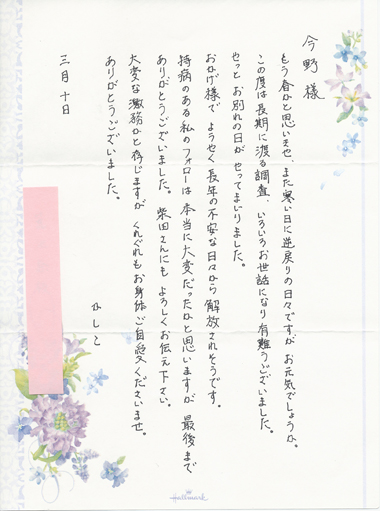 今野様
もう春かと思いきや、また寒い日に逆戻りの日々ですが お元気でしょうか。
この度は長期に渡る調査、いろいろお世話になり有難うございました。
やっと お別れの日が やってまいりました。
おかげ様で ようやく長年の不安な日々から 解放されそうです。
持病のある私のフォローは 本当に大変だったかと思いますが 最後まで
ありがとうございました。 柴田さんにも よろしくお伝え下さい。
大変な激務かと存じますが くれぐれもお身体ご自愛くださいませ。
ありがとうございました。
三月十日
Hallmark